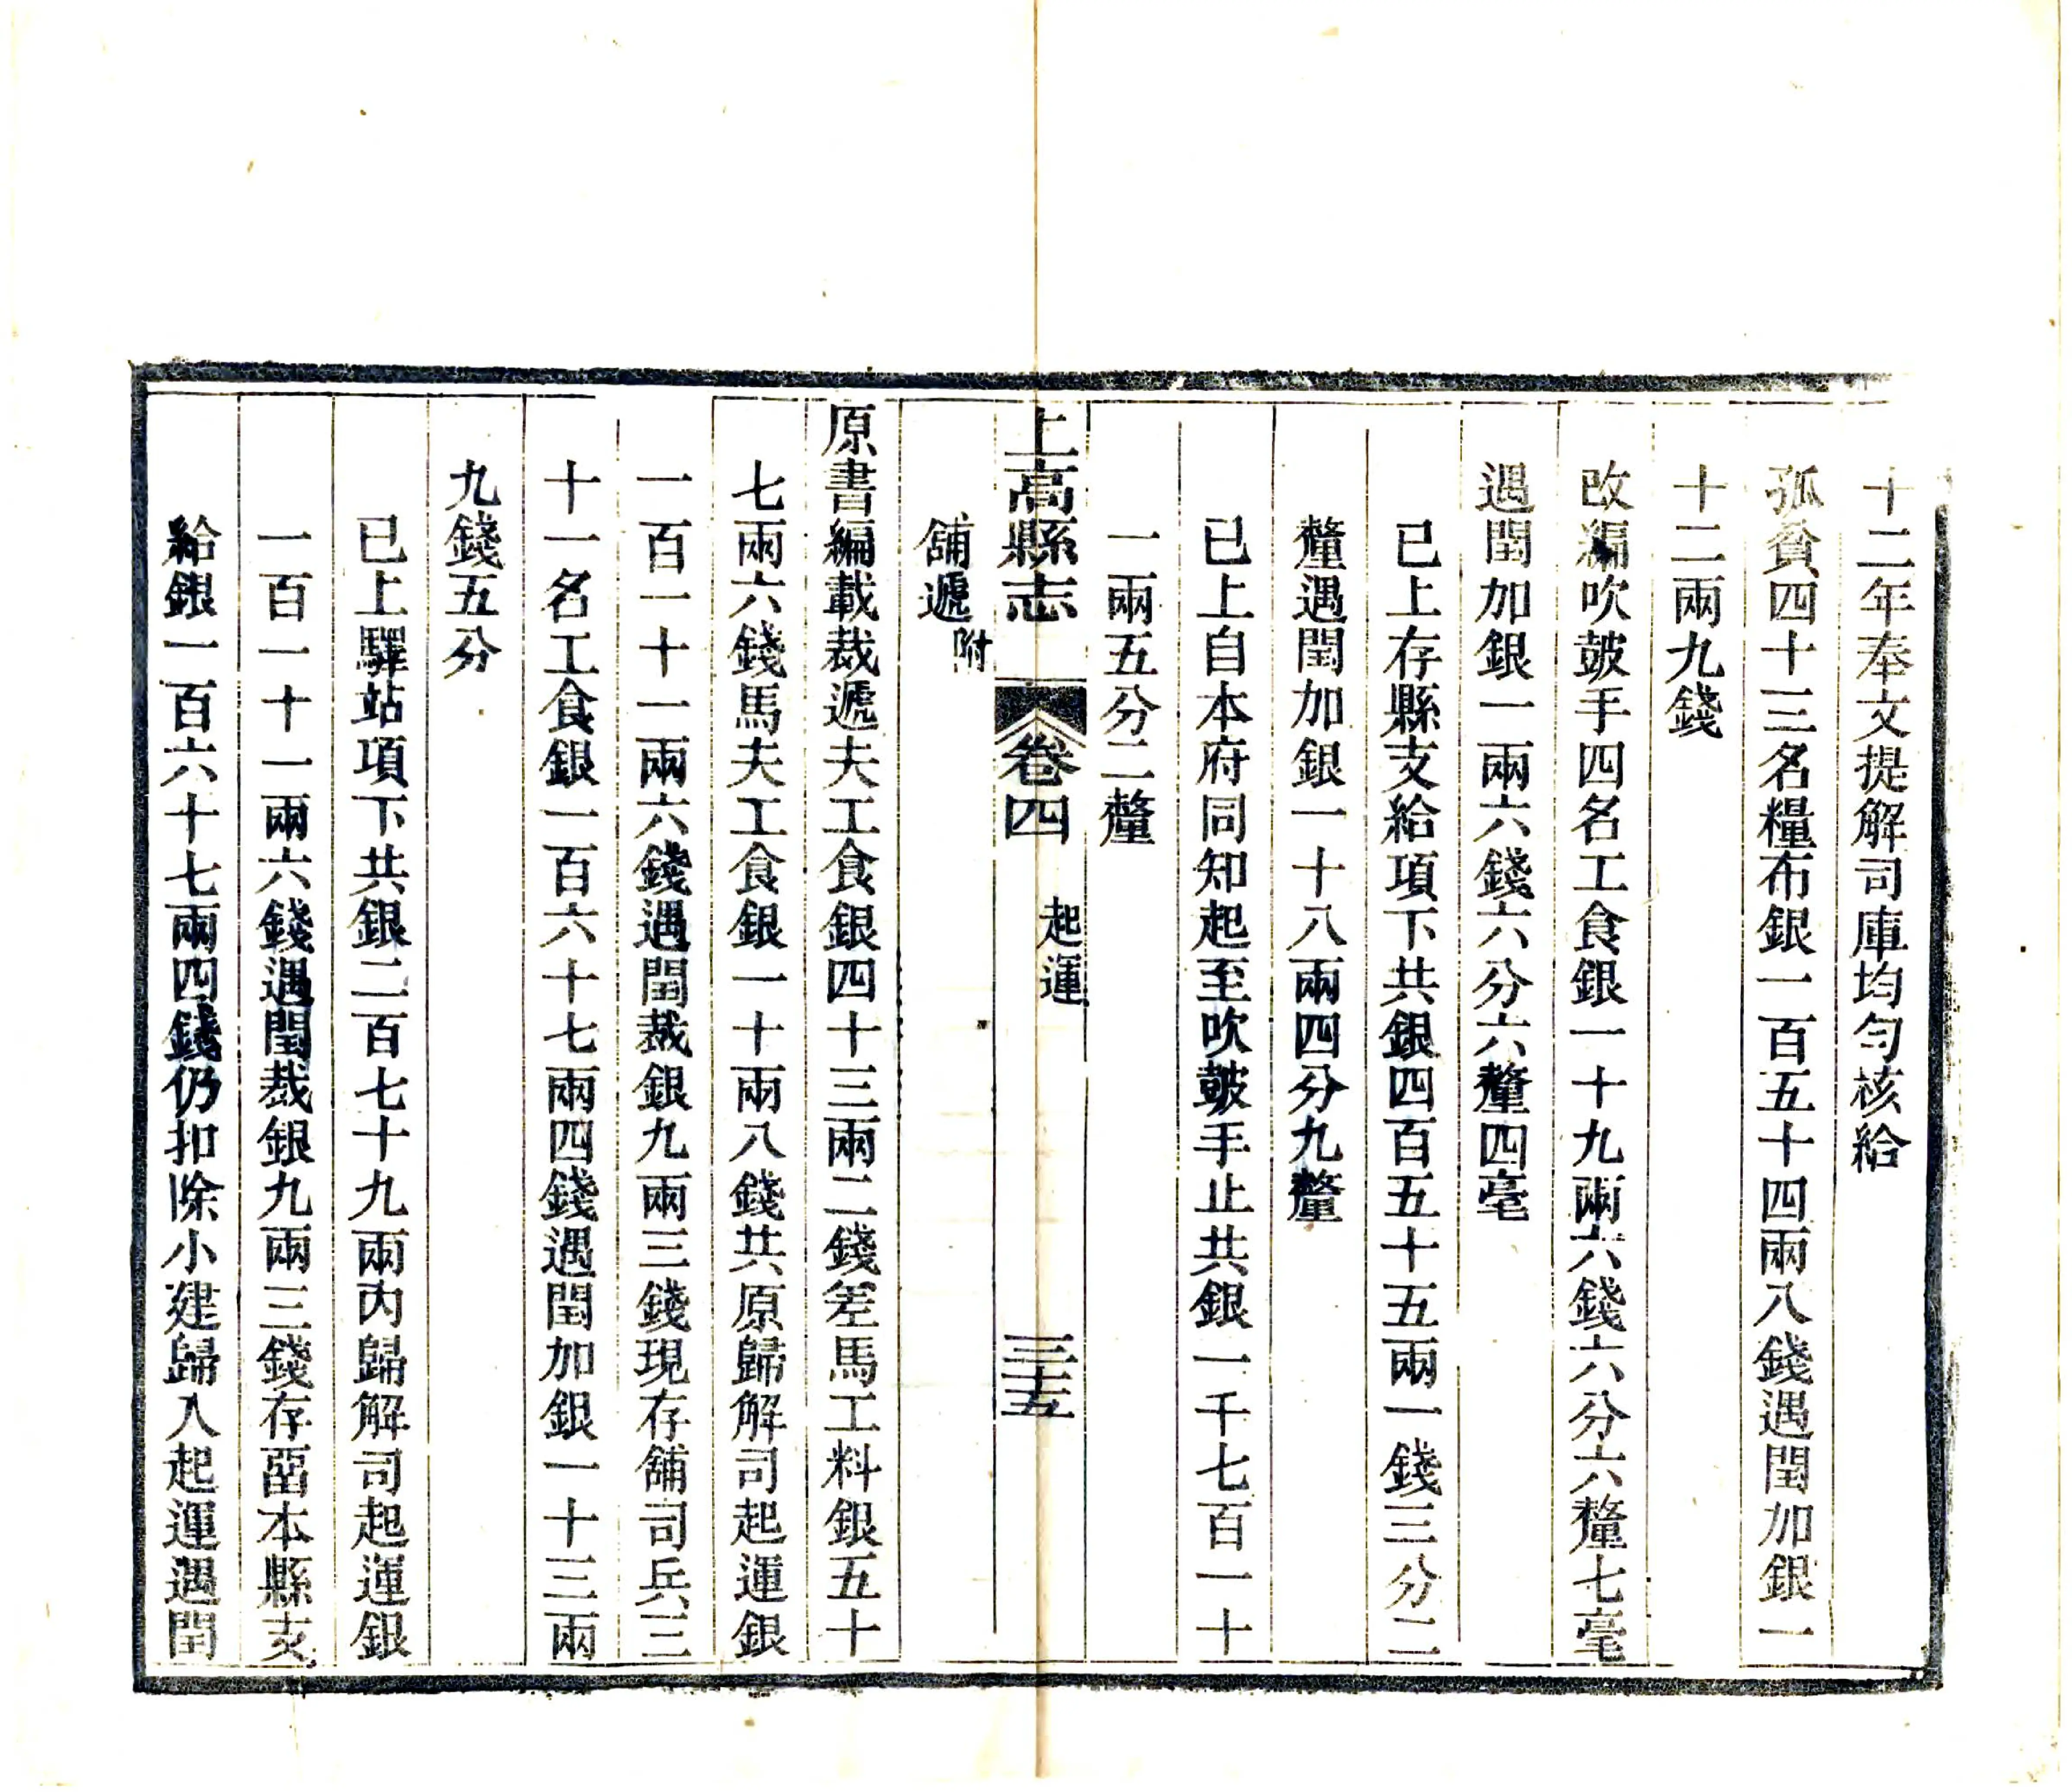 十二年奉文提解司庫均勻核給
孤貧四十三名糧布銀一百五十四兩八錢遇閏加銀一
十二兩九錢
改編吹皷手四名工食銀一十九兩六錢六分六釐七毫
遇閏加銀一兩六錢六分六釐四毫
已上存縣支給項下共銀四百五十五兩一錢三分二
釐遇閏加銀一十八兩四分九釐
已上自本府同知起至吹皷手止共銀一千七百一十
一兩五分二釐
上高縣志 卷四 起運 三十五
舖遞附
原書編載裁遞夫工食銀四十三兩二錢差馬工料銀五十
七兩六錢馬夫工食銀一十兩八錢共原歸解司起運銀
一百一十一兩六錢遇閏裁銀九兩三錢現存舖司兵三
十一名工食銀一百六十七兩四錢遇閏加銀一十三兩
九錢五分
已上驛站項下共銀二百七十九兩內歸解司起運銀
一百一十一兩六錢遇閏裁銀九兩三錢存畱本縣支
給銀一百六十七兩四錢仍扣除小建歸入起運遇閏